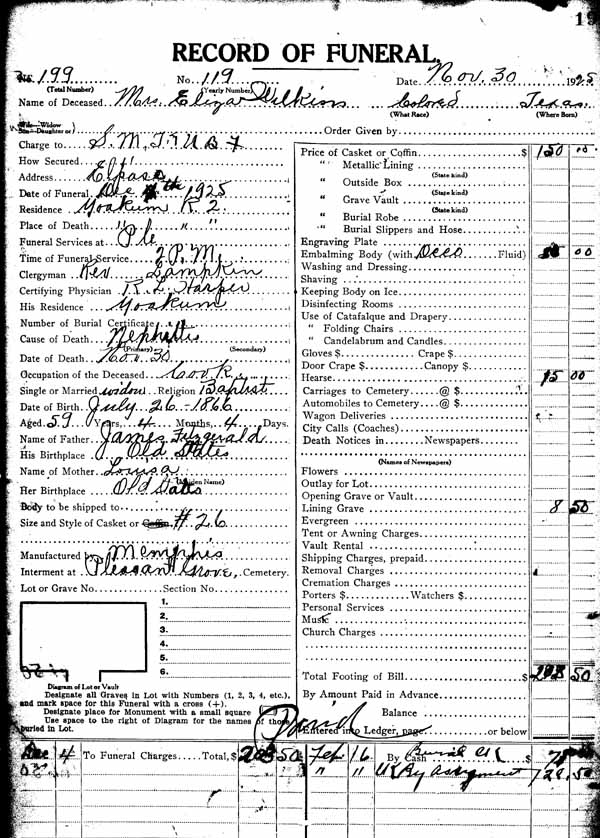 RECORD OF FUNERAL
No. 199 No. 119 Date Nov. 30 1925
(Total Number) (Yearly Number)
Name of Deceased Mrs. Eliza Wilkins Colored Texas
(What Race) (Where Born)
Order Given by
Charge to S. M. TRUBY
How Secured
Address
Date of Funeral Dec 4th 1925
Residence Yoakum R 2.
Place of Death " " "
Funeral Services at
Time of Funeral Service 2 P.M.
Clergyman Rev Lampkin
Certifying Physician Harper
His Residence Yoakum
Number of Burial Certificate
Cause of Death
(Primary) (Secondary)
Date of Death Nov. 30
Occupation of the Deceased
Single or Married widow Religion Baptist
Date of Birth July 26 - 1866
Aged 59 Years, 4 Months, 4 Days.
Name of Father James Fitzgerald
His Birthplace Old States
Name of Mother Louisa
(Maiden Name)
Her Birthplace Old States
Body to be shipped to
Size and Style of Casket or Coffin #26
Manufactured by Memphis
Interment at Pleasant Grove, Cemetery.
Lot or Grave No. Section No.
1.
2.
3.
4.
5.
6.
Diagram of Lot or Vault
Designate all Graves in Lot with Numbers (1, 2, 3, 4, etc.),
and mark space for this Funeral with a cross (+).
Designate place for Monument with a small square
Use space to the right of Diagram for the names of those
buried in Lot.
Price of Casket or Coffin $ 150 00
" Metallic Lining
(State kind)
" Outside Box
(State kind)
" Grave Vault
(State kind)
" Burial Robe
" Burial Slippers and Hose
Engraving Plate
Embalming Body (with Fluid) 00
Washing and Dressing
Shaving
Keeping Body on Ice
Disinfecting Rooms
Use of Catafalque and Drapery
" Folding Chairs
" Candelabrum and Candles
Gloves $ Crape $
Door Crape $ Canopy $
Hearse 15 00
Carriages to Cemetery @ $
Automobiles to Cemetery @ $
Wagon Deliveries
City Calls (Coaches)
Death Notices in Newspapers
(Names of Newspapers)
Flowers
Outlay for Lot
Opening Grave or Vault
Lining Grave 8 50
Evergreen
Tent or Awning Charges
Vault Rental
Shipping Charges, prepaid
Removal Charges
Cremation Charges
Porters $ Watchers $
Personal Services
Music
Church Charges
Total Footing of Bill $ 203 50
By Amount Paid in Advance
Balance
Paid
Entered into Ledger, page or below
Dec 4 To Funeral Charges Total, $ 203 50 Feb 16 By Cash $
" " By assignment